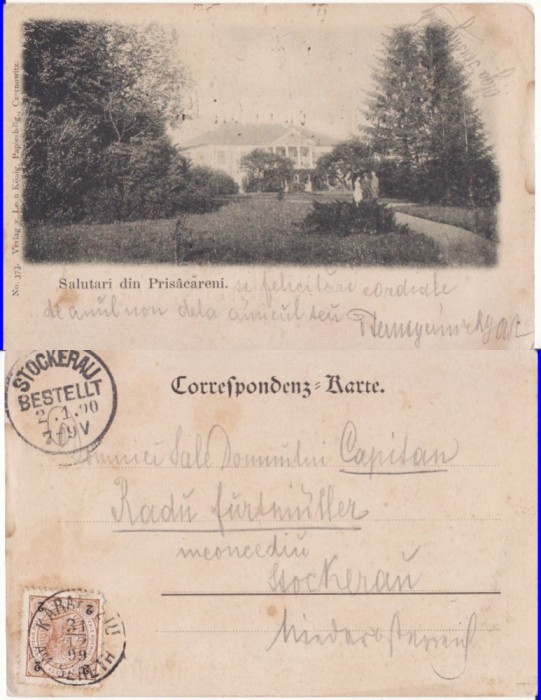 No. 373. Verlag v. Leon König, Papierhdlg., Czernowitz
Salutari din Prisăcăreni. se felicitări cordiale
de anul nou dela amicul seu
STOCKERAU
BESTELLT
2.1.90
7-9V
Correspondenz-Karte.
Domniei Sale Domnului Capitan
Radu Furtmüller
in concediu
Stockerau
Niederösterreich
31
12
99